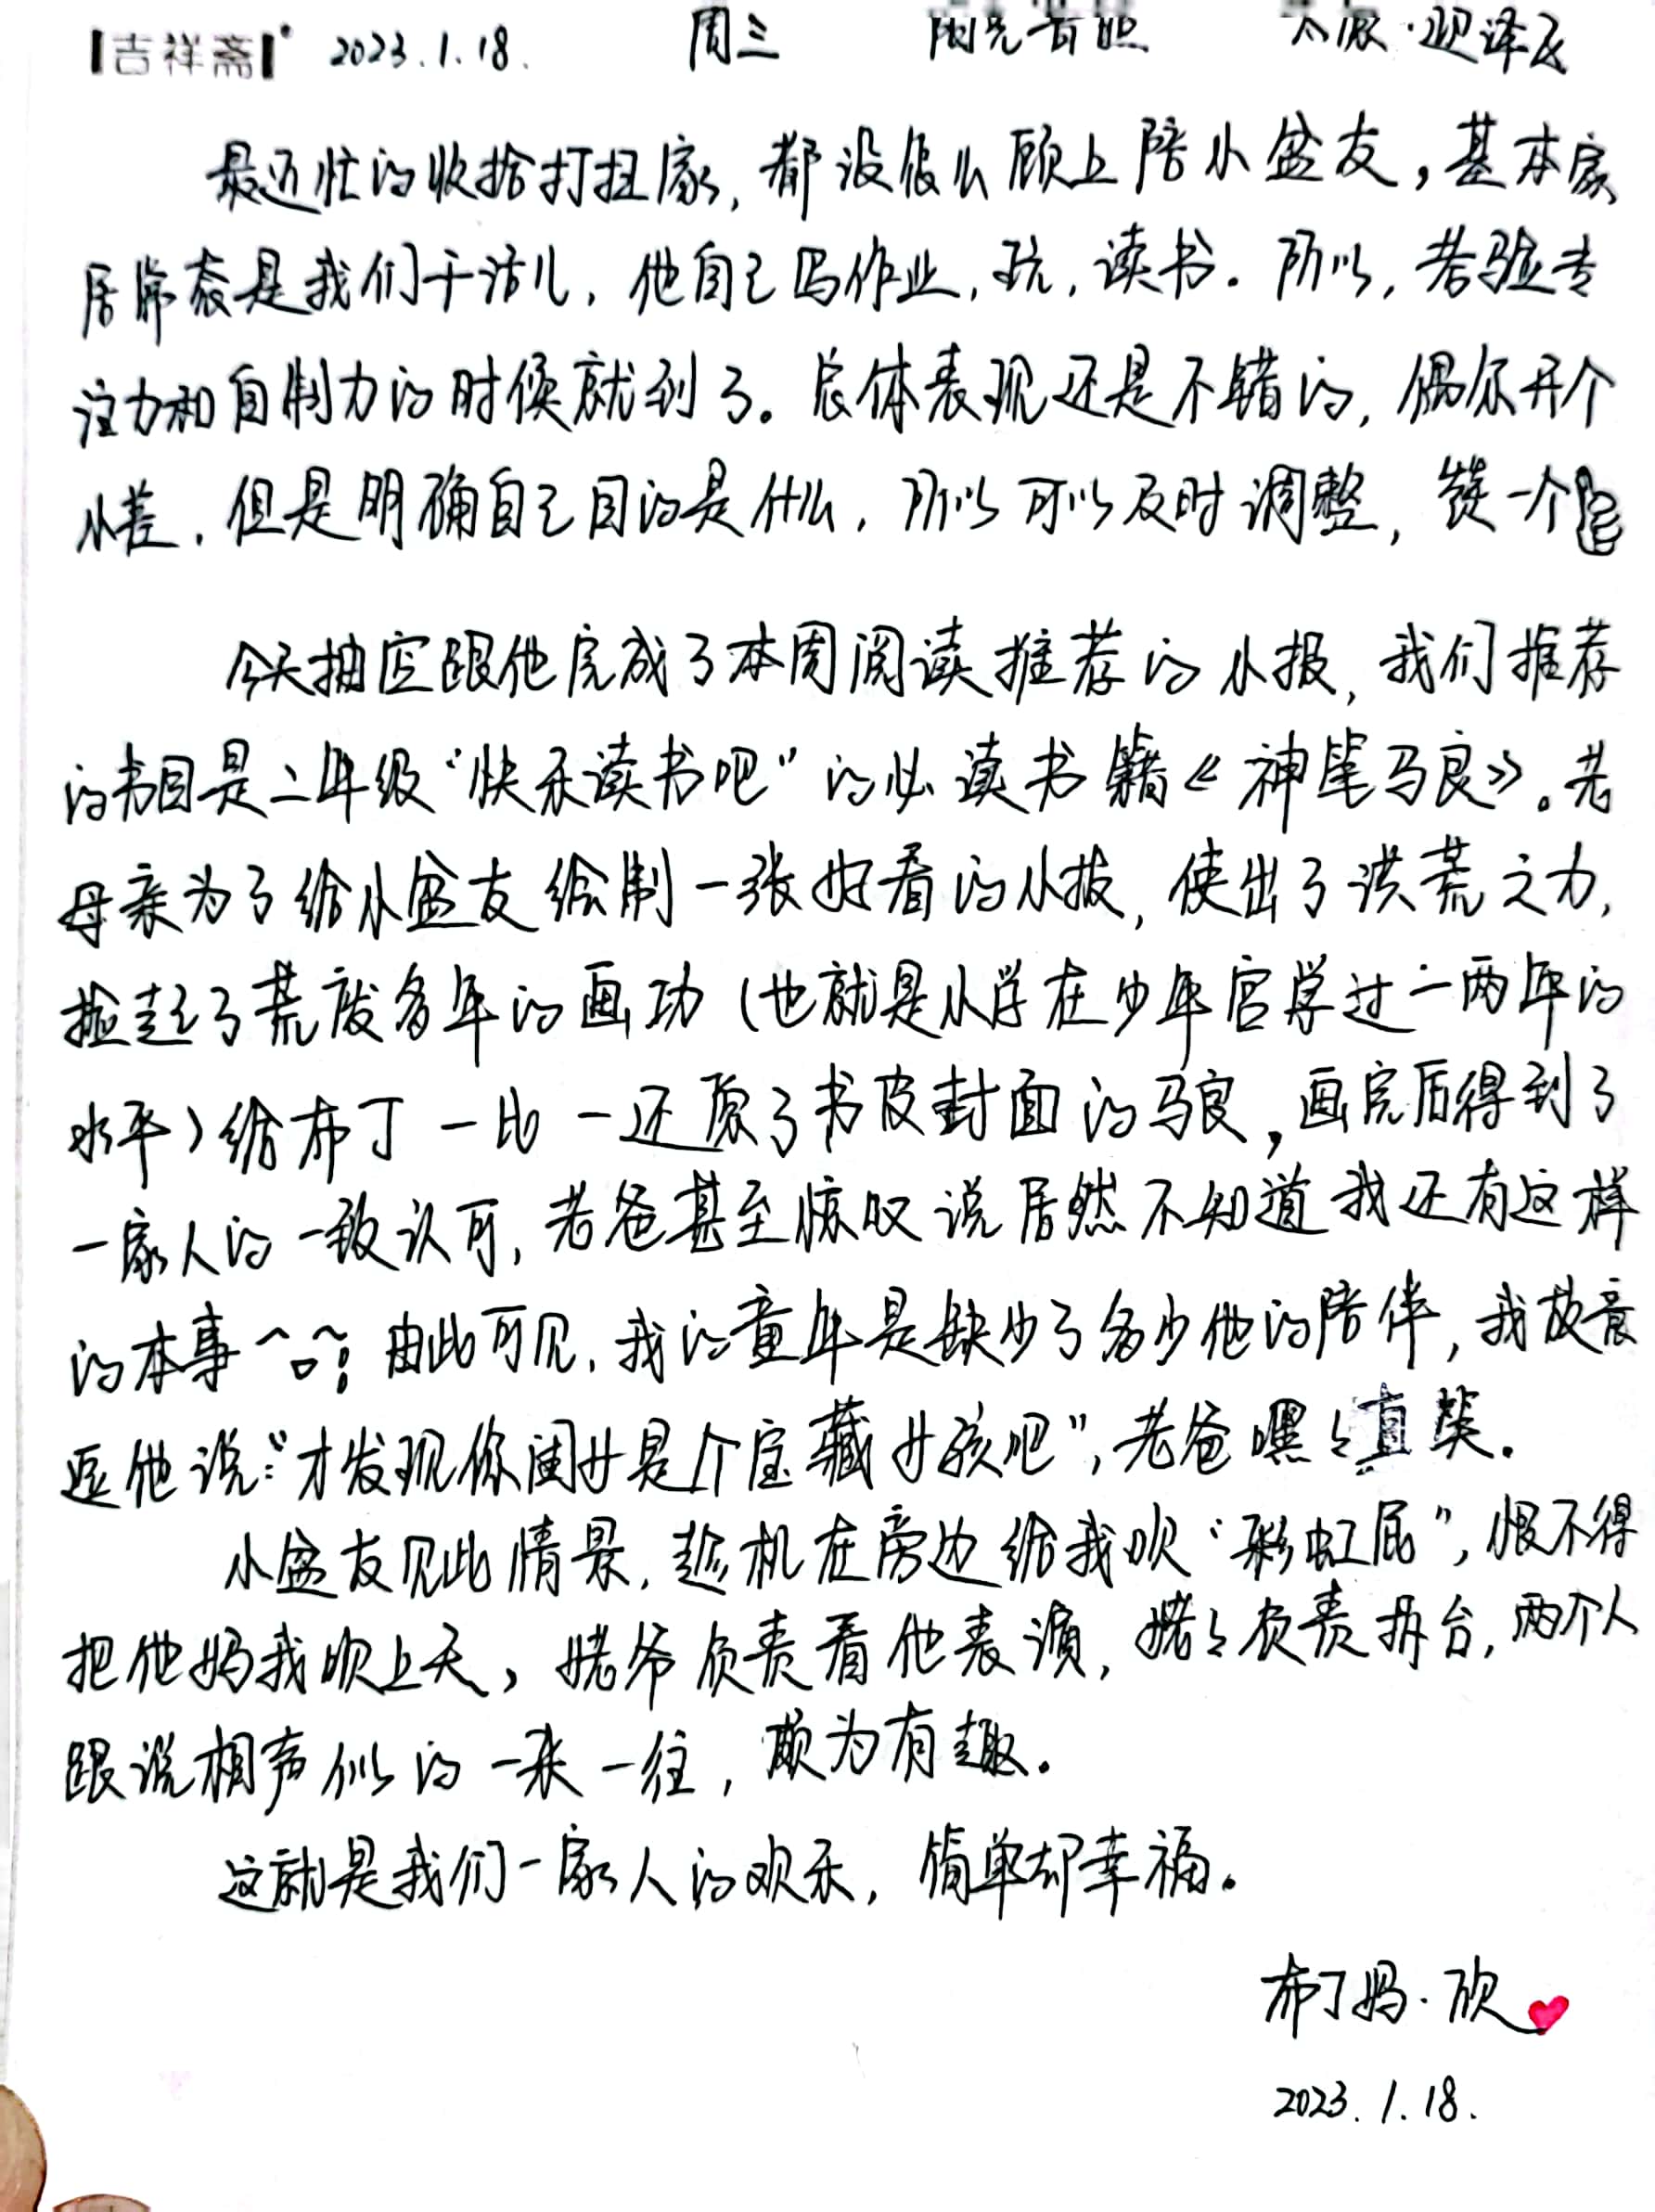 吉祥斋 2023.1.18. 周三 阳光普照 太原·迎泽区
最近忙的收拾打扫家,都没怎么顾上陪小盆友,基本家
居常态是我们干活儿,他自己写作业,玩,读书。所以,考验专
注力和自制力的时候就到了。总体表现还是不错的,偶尔开个
小差,但是明确自己目的是什么,所以可以及时调整,赞一个
今天抽空跟他完成了本周阅读推荐的小报,我们推荐
的书目是二年级“快乐读书吧”的必读书籍《神笔马良》。老
母亲为了给小盆友绘制一张好看的小报,使出了洪荒之力,
捡起了荒废多年的画功(也就是小学在少年宫学过一两年的
水平)给布丁一比一还原了书皮封面的马良,画完后得到了
一家人的一致认可,老爸甚至惊叹说居然不知道我还有这样
的本事^o^; 由此可见,我的童年是缺少了多少他的陪伴,我故意
逗他说:“才发现你闺女是个宝藏女孩吧”,老爸嘿々直笑。
小盆友见此情景,趁机在旁边给我吹“彩虹屁”,恨不得
把他妈我吹上天,姥爷负责看他表演,姥々负责拆台,两个人
跟说相声似的一来一往,颇为有趣。
这就是我们一家人的欢乐,简单却幸福。
布丁妈·欣
2023.1.18.